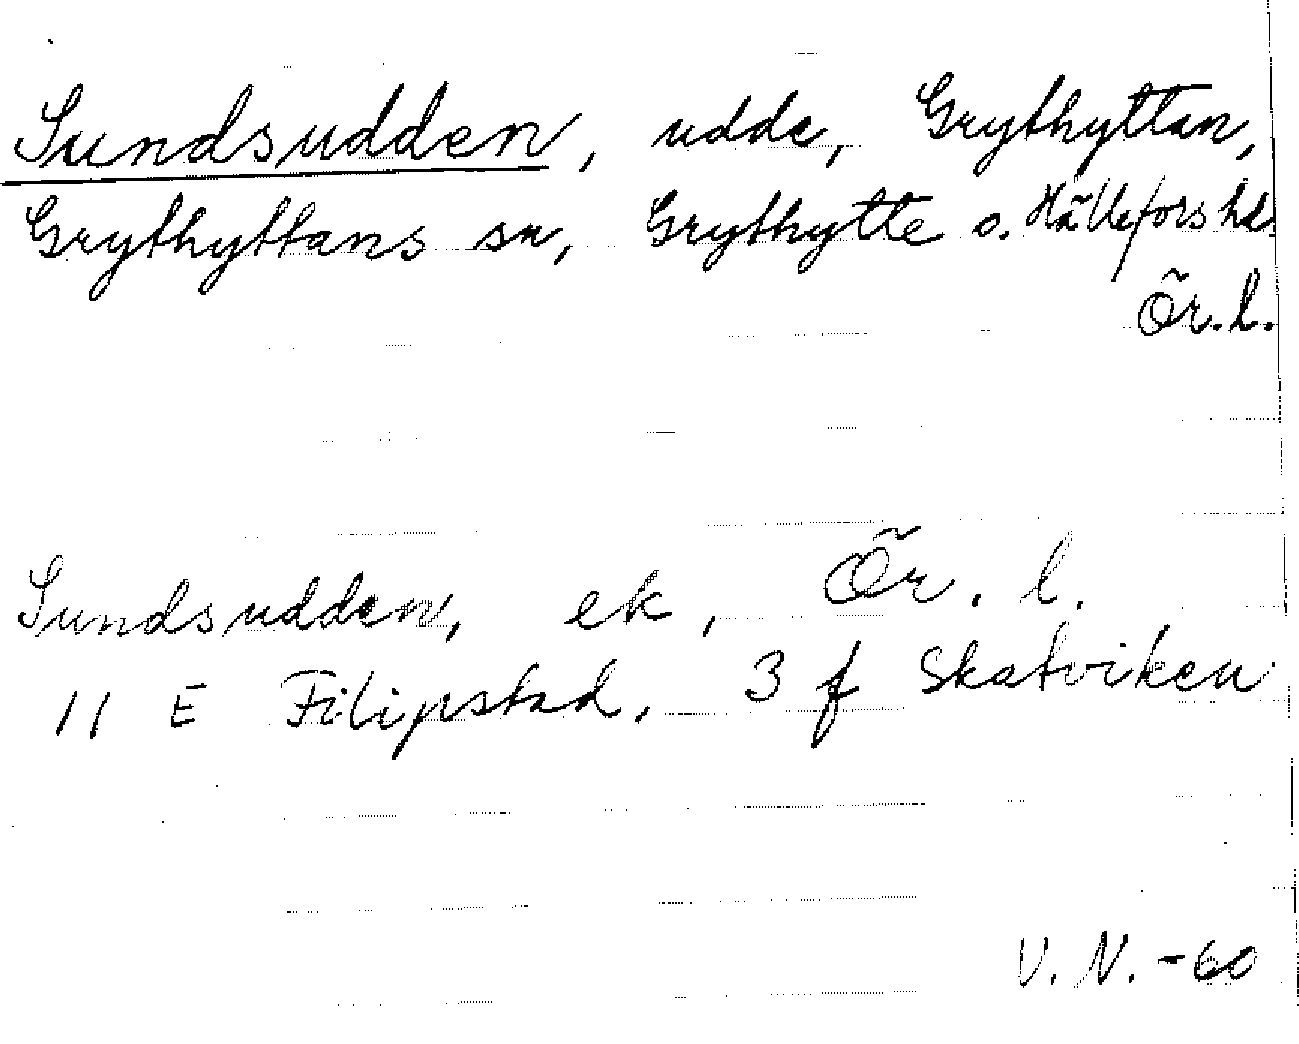 Sundsudden, udde, Grythyttan,
Grythyttans sn, Grythytte o. Hällefors hd.
Ör. l.
Sundsudden, ek, Ör. l.
11 E Filipstad, 3 f Skatviken
V. N. -60